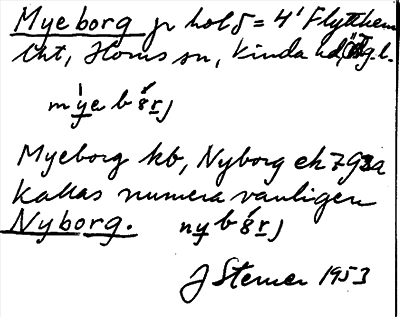 Myeborg jr hol 5 = 4' Flytthem
tht, Horns sn, Kinda hd, Ög.l.
mýe b 8́ r j
Myeborg kb, Nyborg ek 7G3a
kallas numera vanligen
Nyborg. ny b 8́ r j
J Sterner 1953